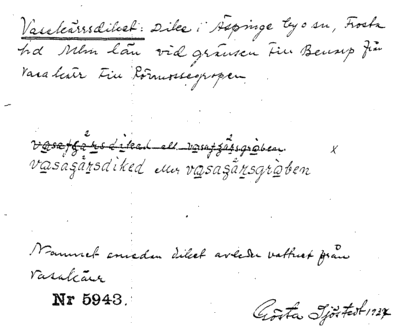 Vasakärrsdiket: Dike i Äspinge by o sn, Frosta
hd Mlm län vid gränsen till Benarp från
Vasakärr till Rörmossegropen.
vasasgårsdiked ell vasasgårsgråben x
vasasgårsdiked eller vasasgårsgråben
Namnet emedan diket avleder vattnet från
Vasakärr
Nr 5943.
Gösta Sjöstedt 1934